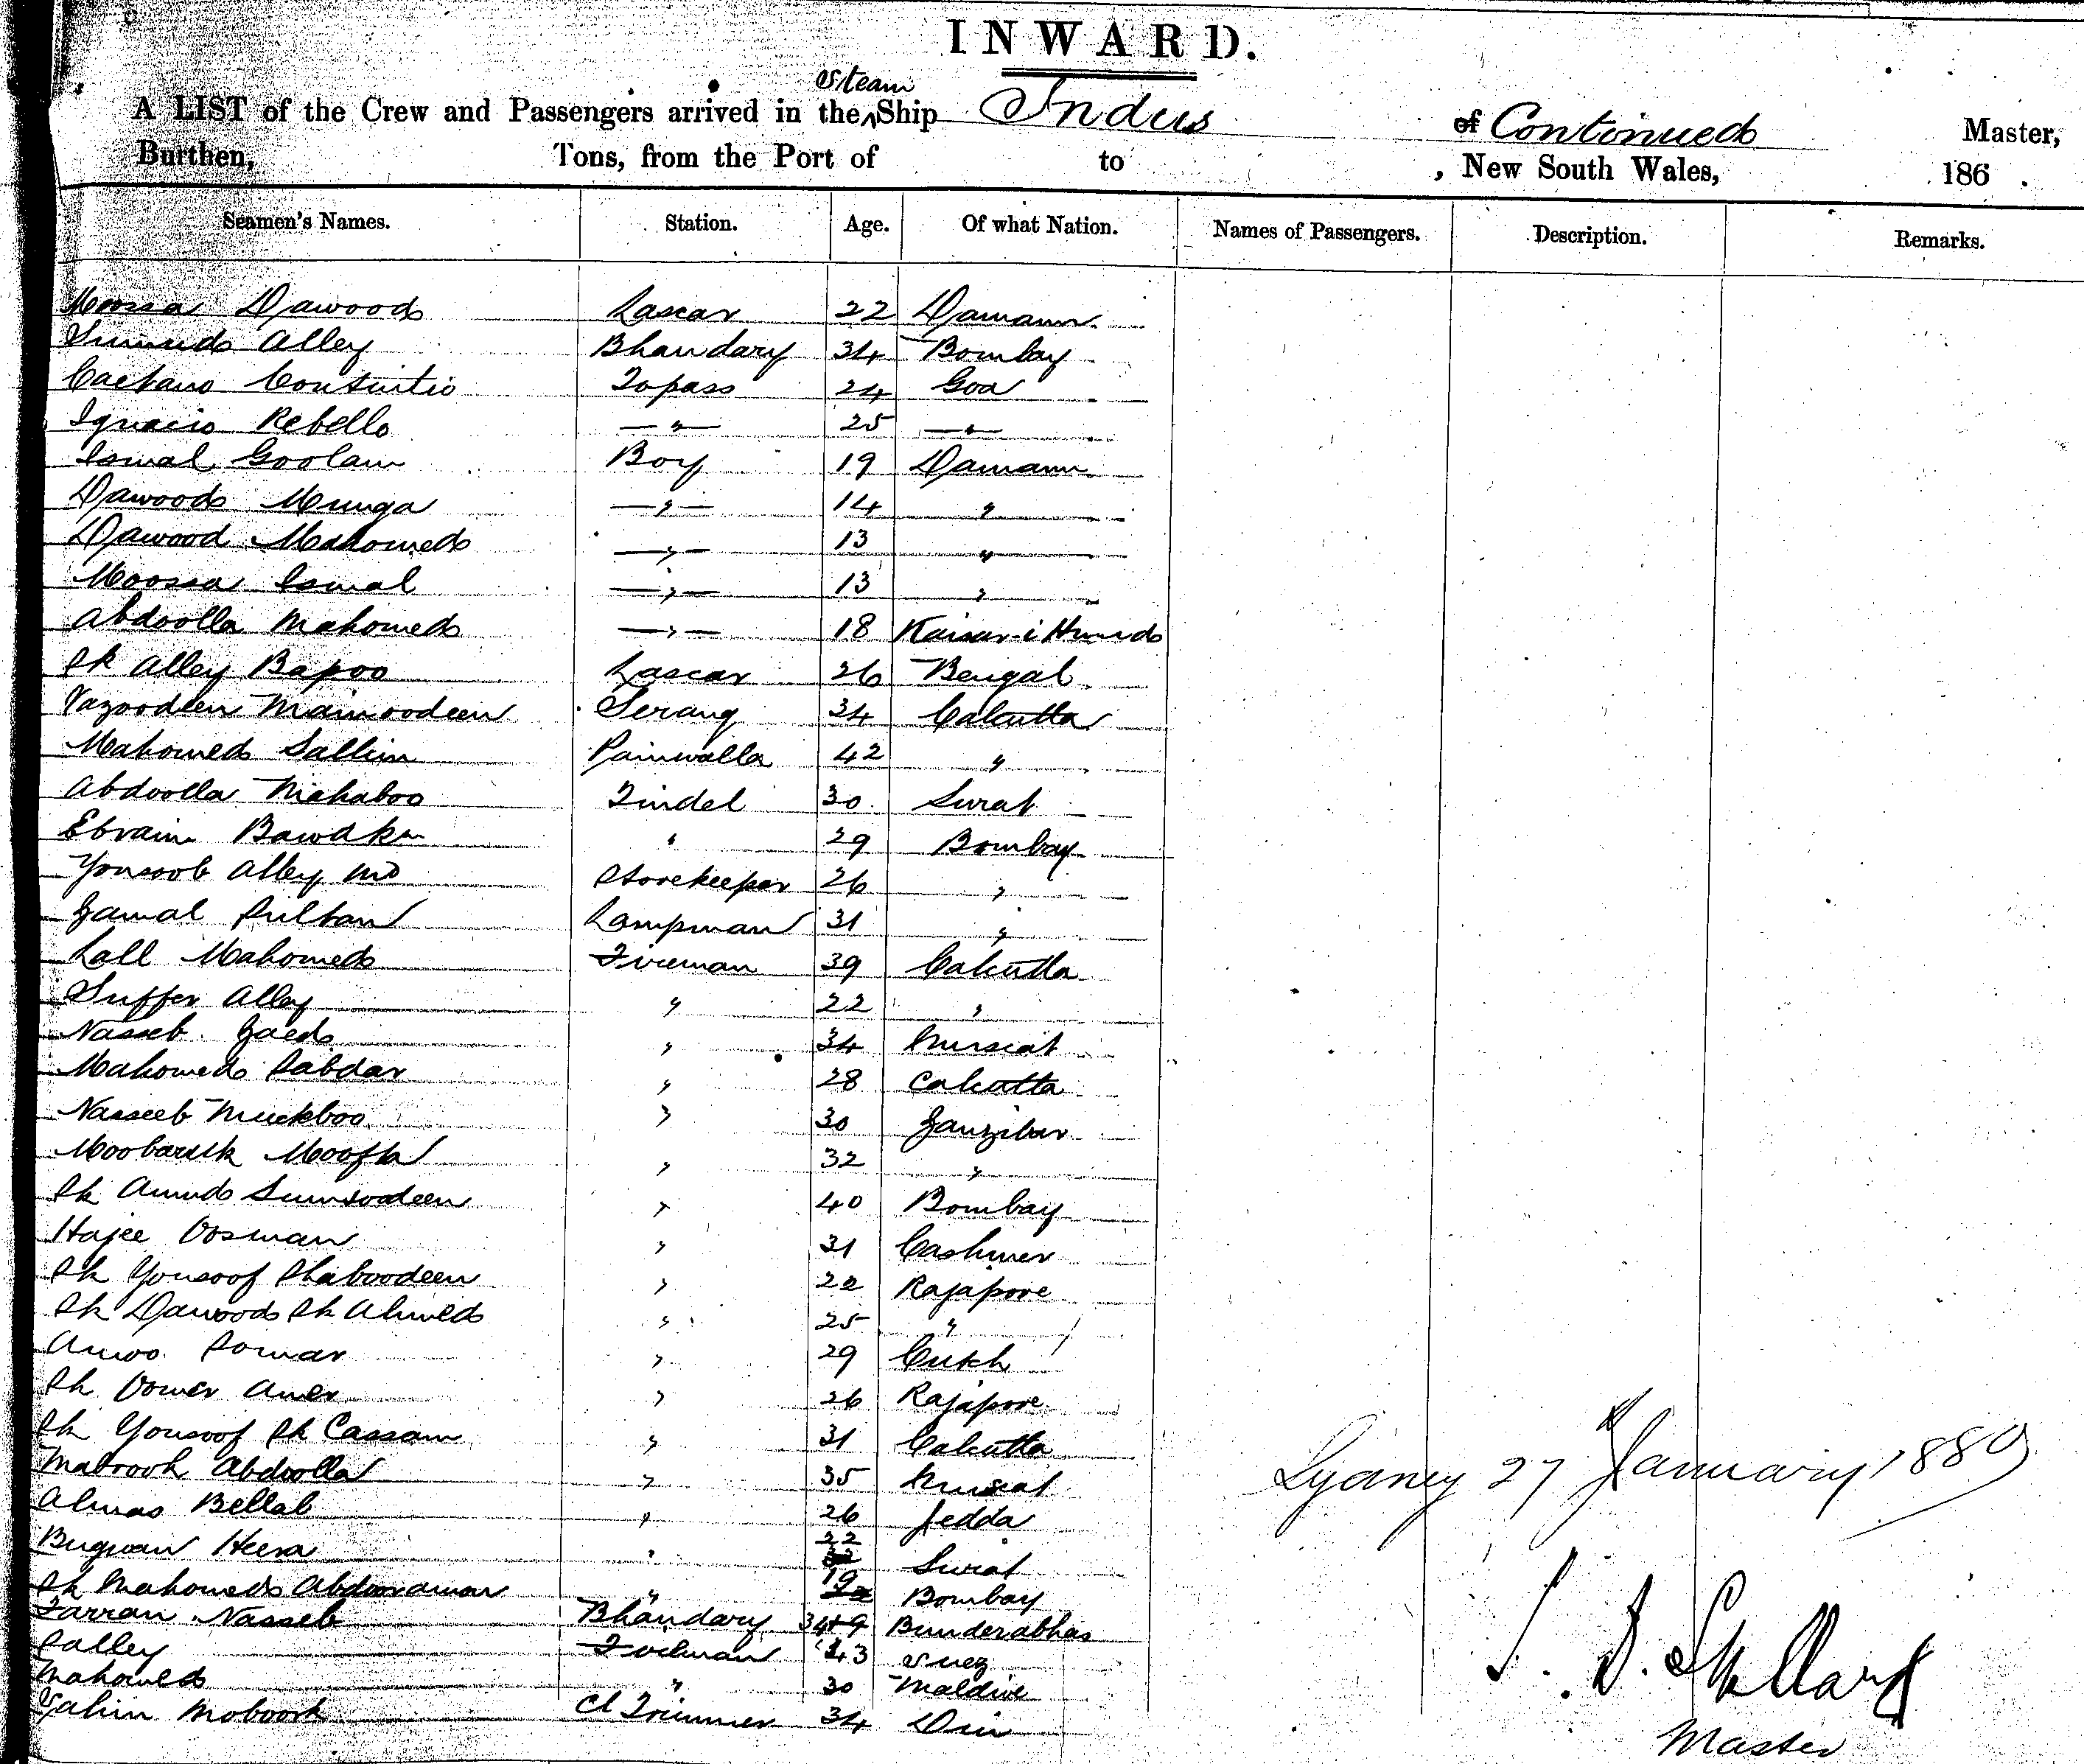 INWARD.
Steam
A LIST of the Crew and Passengers arrived in the ^ Ship Indus of Continued Master,
Burthen, Tons, from the Port of to , New South Wales, 186 .
Seamen's Names. Station. Age. Of what Nation. Names of Passengers. Description. Remarks.
Moossa Dawood Lascar 22 Damaun
Alley Bhandary 34 Bombay
Caetano Topass 24 Goa
Ignacio Rebello —"— 25 —"—
Ismal Goolam Boy 19 Damaun
Dawood Munga —"— 14 "
Dawood Mahomed —"— 13 "
Moossa Ismal —"— 13 "
Abdoolla Mahomed —"— 18 Kaisar-i-Hind
Sk Alley Bapoo Lascar 26 Bengal
Mainoodeen Serang 34 Calcutta
Mahomed Sallim Paniwalla 42 "
Abdoolla Mahaboo Tindel 30 Surat
Ebraim " 29 Bombay
Yousoob Alley Md Storekeeper 26 "
Jamal Sultan Lampman 31 "
Lall Mahomed Fireman 39 Calcutta
Suffer Alley " 22 "
Nasseb Zaed " 34 Muscat
Mahomed Sabdar " 28 Calcutta
Nasseeb Muckboo " 30 Zanzibar
Moobaruk Moofta " 32 "
Sk Amud Sumsoodeen " 40 Bombay
Hajee Oosman " 31 Cashmer
Sk Yousoof Shaboodeen " 22 Rajapore
Sk Dawood Sk Ahmed " 25 "
Amoo Somar " 29 Cutch
Sk Oomer Amer " 26 Rajapore
Sk Yousoof Sk Cassam " 31 Calcutta
Mabrook Abdoolla " 35 Muscat
Almas Bellal " 26 Jedda
Bugwan Heera " 22 Surat
Sk Mahomed " 19 Bombay
Farran Nasseb Bhandary 34 Bunderabhas
Salley Fireman 43 Suez
Mahomed " 30 Maldive
Mabrook Cl Trimmer 34 Diu
Sydney 27 January 1889
Master